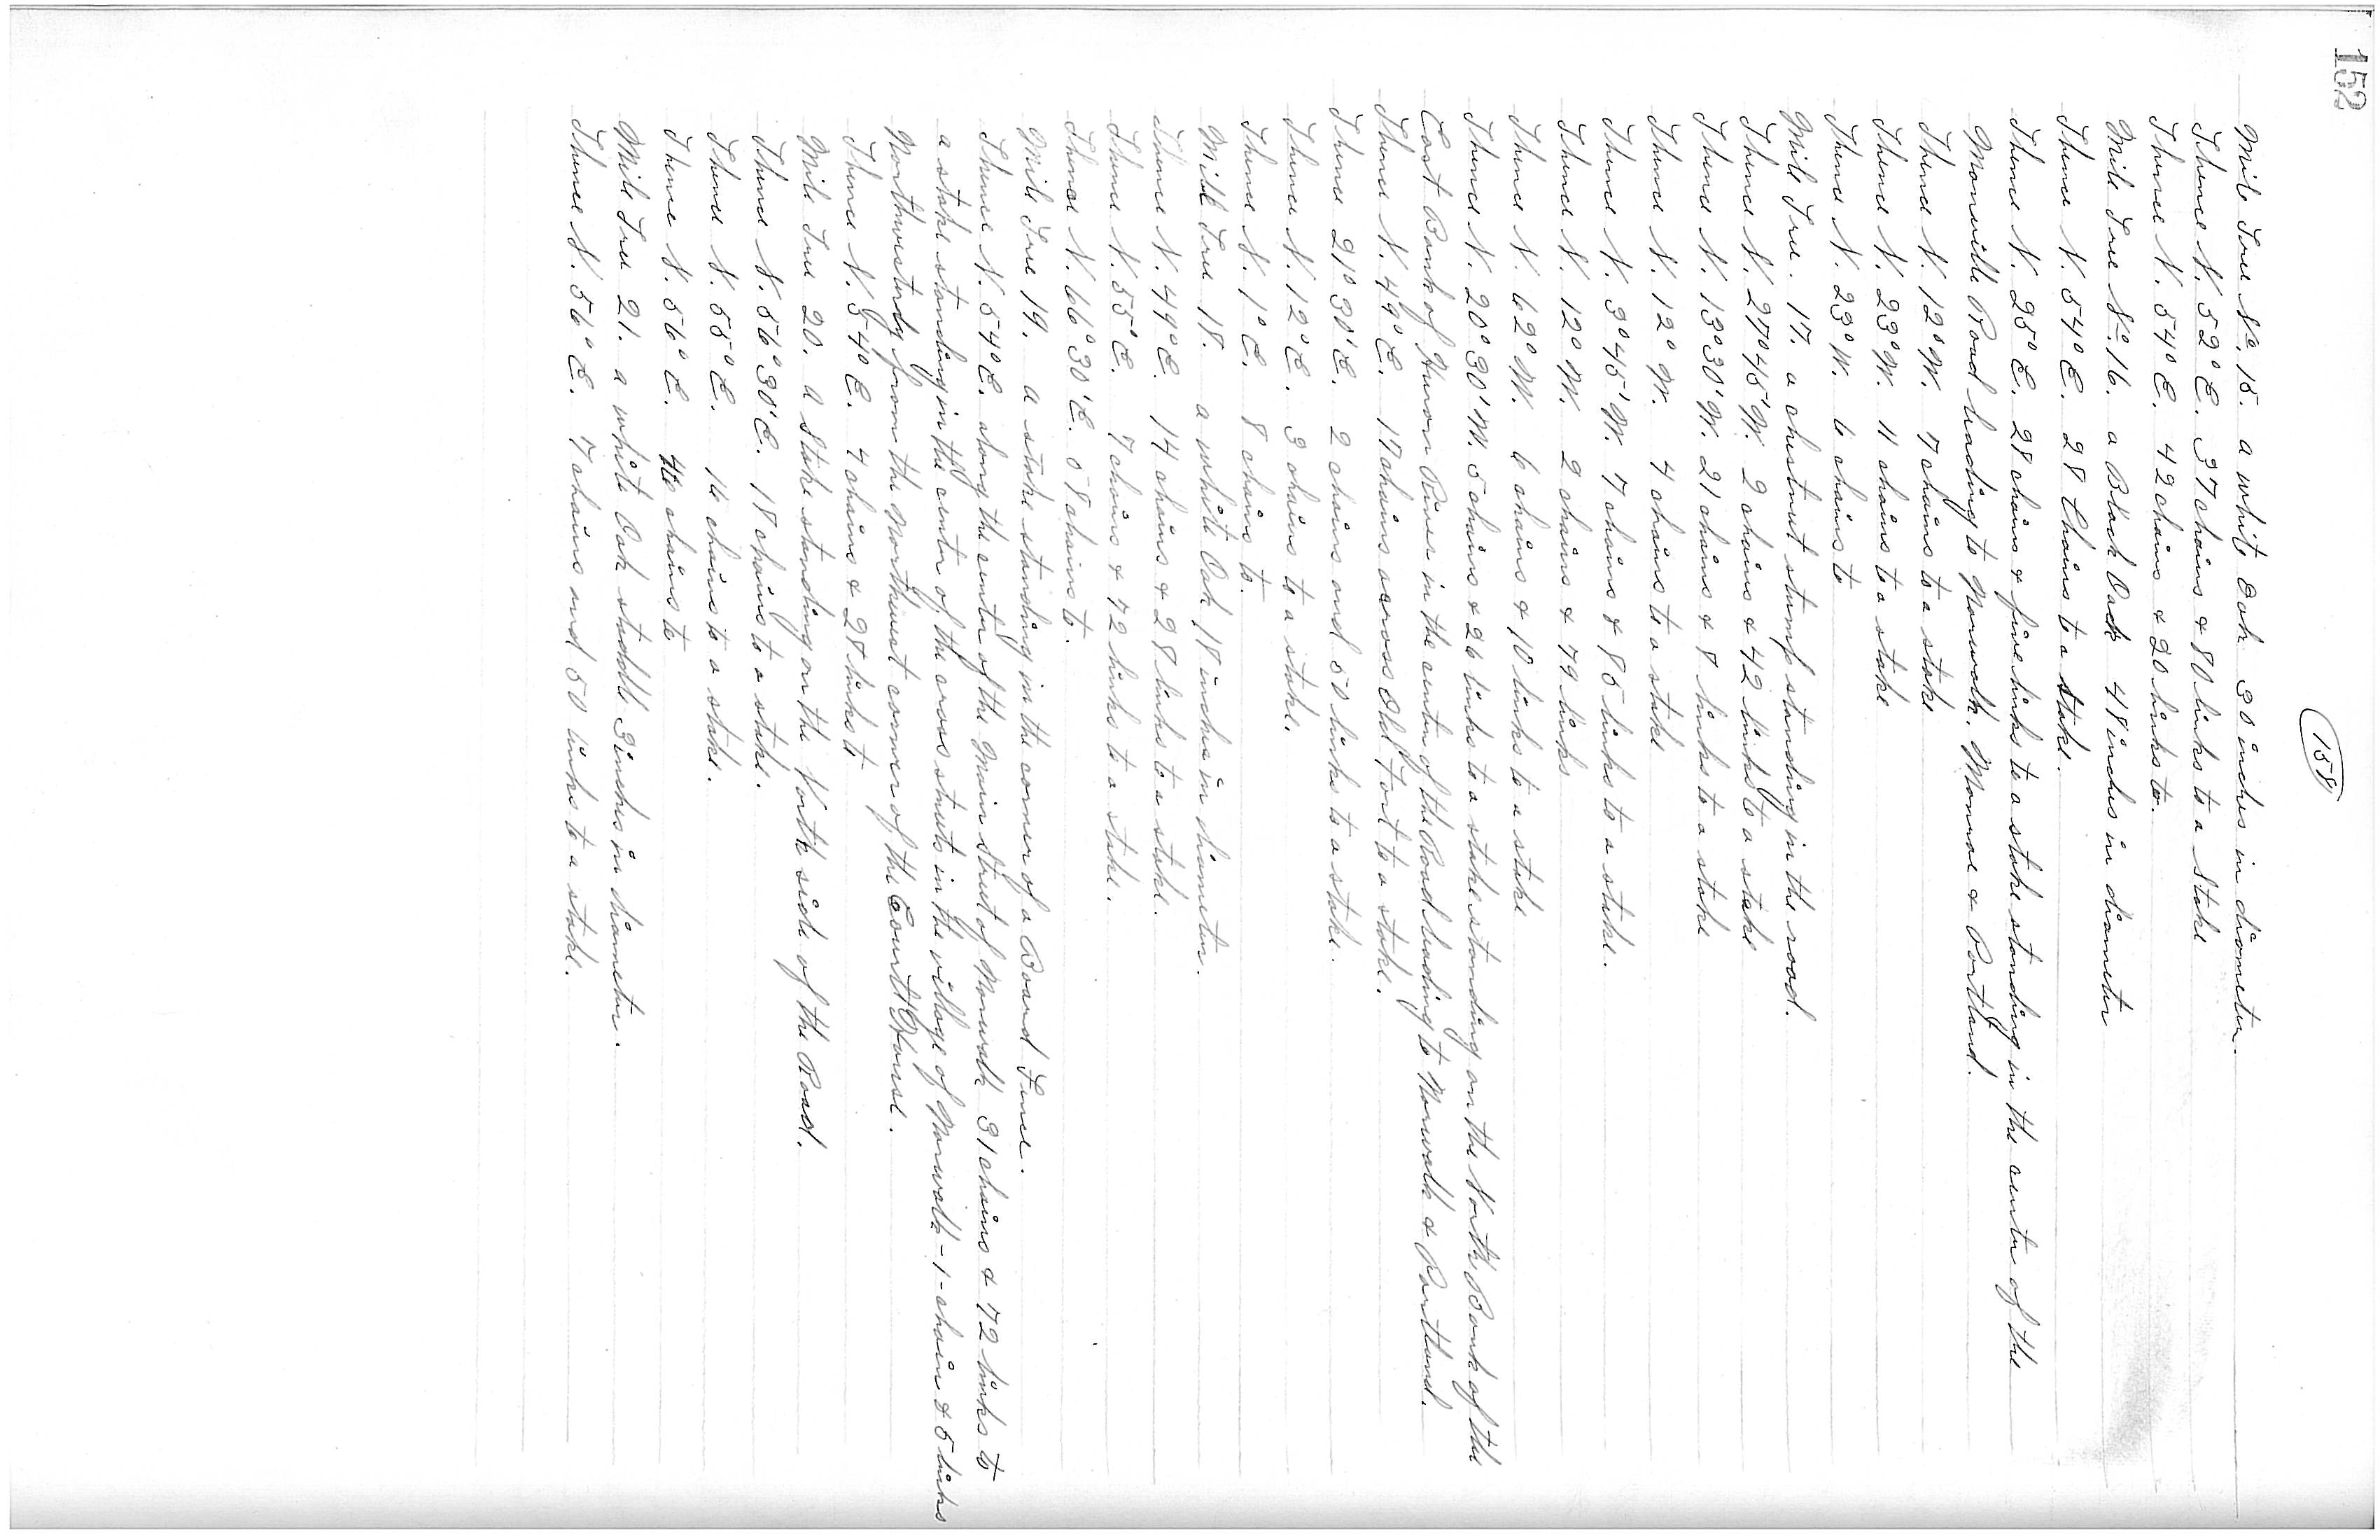 152
158
Mile Tree No. 15. a white Oak 30 inches in diameter.
Thence N. 52° E. 37 chains & 80 links to a Stake
Thence N. 54° E. 42 chains & 20 links to.
Mile Tree No. 16. a Black Oack 48 inches in diameter
Thence N. 54° E. 28 Chains to a Stake.
Thence N. 25° E. 28 chains & five links to a stake standing in the center of the
Monroville Road leading to Norwalk. Monroe & Portland.
Thence N. 12° W. 7 chains to a stake
Thence N. 23° W. 11 chains to a stake
Thence N. 23° W. 6 chains to
Mile Tree. 17. a chestnut stump standing in the road.
Thence N. 27° 45' W. 2 chains & 42 links to a stake
Thence N. 13° 30' W. 21 chains & 8 links to a stake
Thence N. 12° W. 4 chains to a stake
Thence N. 3° 45' W. 7 chains & 85 links to a stake.
Thence N. 12° W. 2 chains & 79 links
Thence N. 62° W. 6 chains & 10 links to a stake
Thence N. 20° 30' W. 5 chains & 26 links to a stake standing on the North Bank of the
East Bank of Huron River in the center of the Road leading to Norwalk & Portland.
Thence N. 49° E. 17 chains across Old Fort to a stake.
Thence 21° 30' E. 2 chains and 50 links to a stake.
Thence N. 12° E. 3 chains to a stake.
Thence N. 1° E. 8 chains to.
Mile Tree 18. a white Oak 18 inches in diameter.
Thence N. 49° E. 14 chains & 28 links to a stake.
Thence N. 55° E. 7 chains & 72 links to a stake.
Thence N. 66° 30' E. 58 chains to.
Mile Tree 19. a stake standing in the corner of a Board Fence.
Thence N. 54° E. along the center of the Main Street of Norwalk 31 chains & 72 links to
a stake standing in the center of the cross streets in the village of Norwalk - 1 - chain & 5 links
Northwesterly from the Northwest corner of the Court House.
Thence N. 54° E. 4 chains & 28 links to
Mile Tree 20. a Stake standing on the North side of the Road.
Thence N. 56° 30' E. 18 chains to a stake.
Thence N. 55° E. 16 chains to a stake.
Thence N. 56° E. 46 chains to
Mile Tree 21. a white Oak staddle 3 inches in diameter.
Thence N. 56° E. 7 chains and 50 links to a stake.